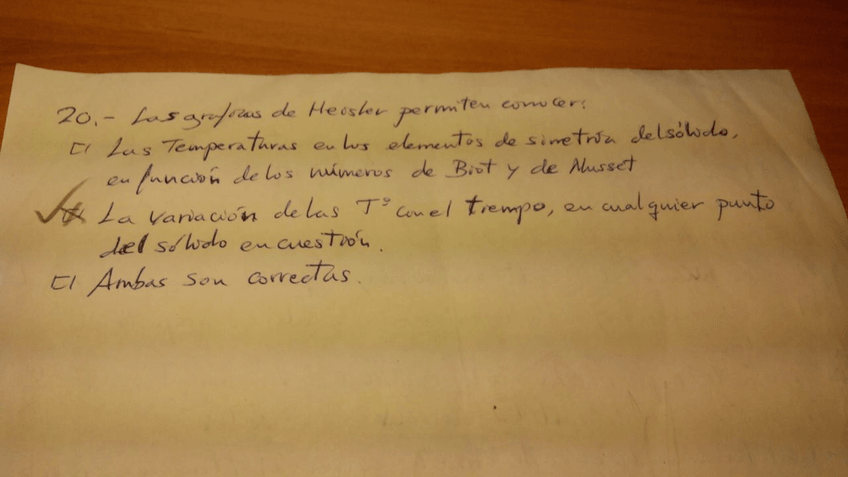 20.- Las graficas de Heisler permiten conocer:
Las Temperaturas en los elementos de simetría del sólido,
en función de los números de Biot y de Nusset
La variación de las Tª con el tiempo, en cualquier punto
del sólido en cuestión.
Ambas son correctas.